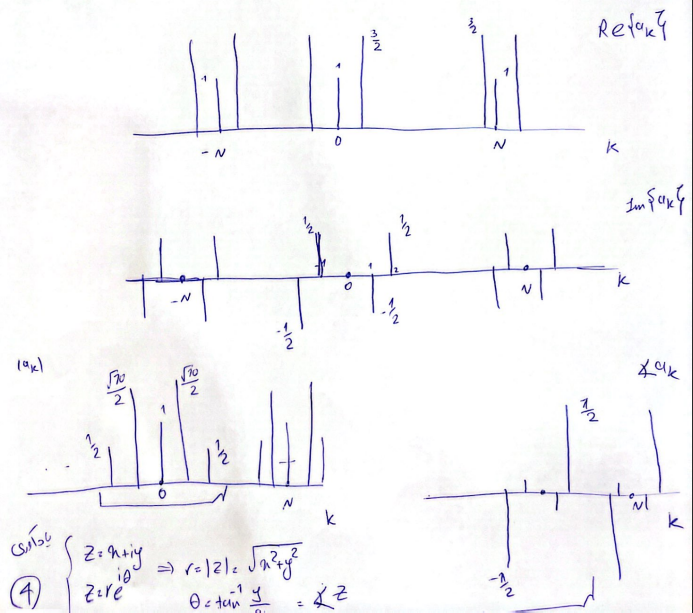 Re{a_k}
3/2
3/2
1
1
1
-N
0
N
k
Im{a_k}
1/2
1/2
-1
1
2
-N
0
N
k
-1/2
-1/2
|a_k|
√10/2
√10/2
1
1/2
1/2
. . .
0
N
k
∡a_k
π/2
N
k
-π/2
یادآوری
z = x+iy ⇒ r=|z|= √x²+y²
z = re^{iθ}
θ = tan⁻¹ y/x = ∡z
4